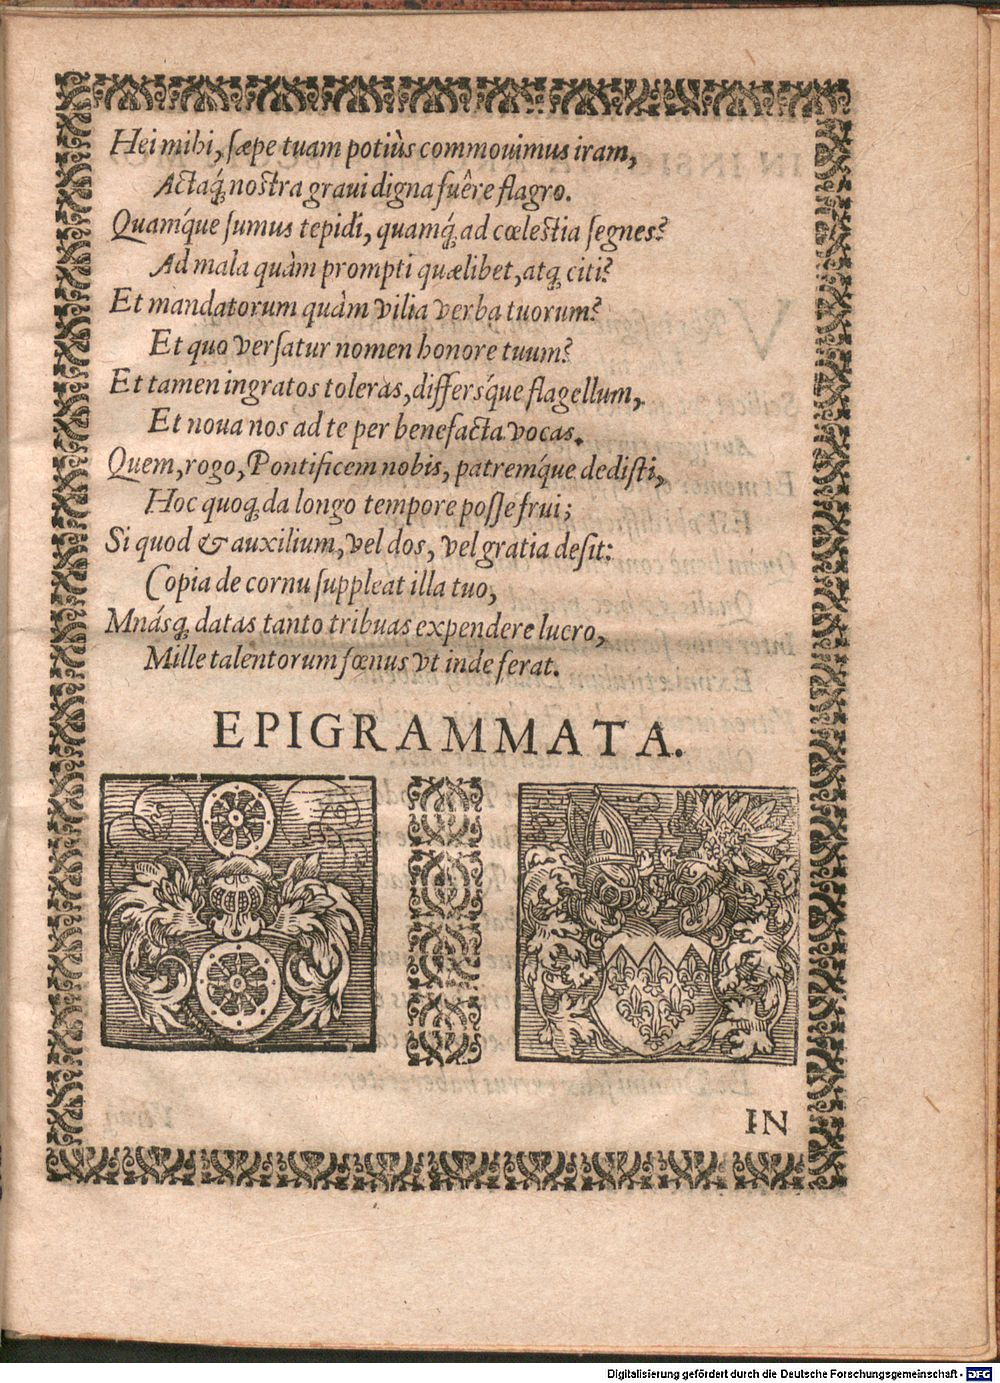 Hei mihi, sæpe tuam potiùs commouimus iram,
Actaq́; nostra graui digna fuêre flagro.
Quamq́ue sumus tepidi, quamq́; ad cœlestia segnes?
Ad mala quàm prompti quælibet, atq; citi?
Et mandatorum quàm vilia verba tuorum?
Et quo versatur nomen honore tuum?
Et tamen ingratos toleras, differsq́ue flagellum,
Et noua nos ad te per benefacta vocas.
Quem, rogo, Pontificem nobis, patremq́ue dedisti,
Hoc quoq; da longo tempore posse frui;
Si quod & auxilium, vel dos, vel gratia desit:
Copia de cornu suppleat illa tuo,
Mnásq; datas tanto tribuas expendere lucro,
Mille talentorum fœnus vt inde ferat.
EPIGRAMMATA.
IN
Digitalisierung gefördert durch die Deutsche Forschungsgemeinschaft - DFG